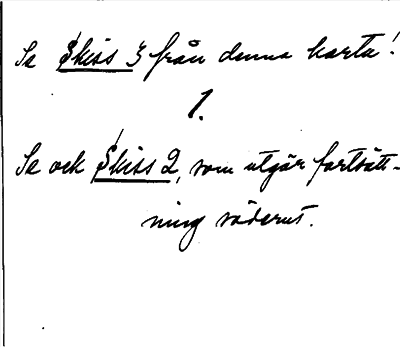 Se Skiss 3 från denna karta!
1.
Se och Skiss 2, som utgör fortsätt-
ning söderut.